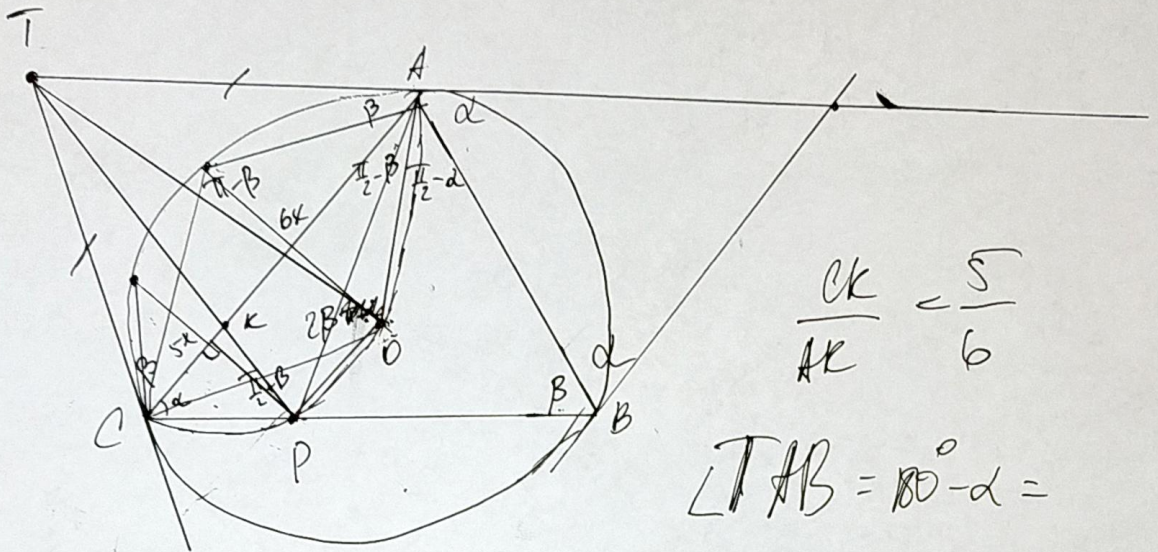 T
A
β
α
π-β
π/2-β
π/2-α
6x
K
2β
O
5x
β
α
π/2-β
β
α
C
P
B
CK/AK = 5/6
∠TAB = 180°-α =